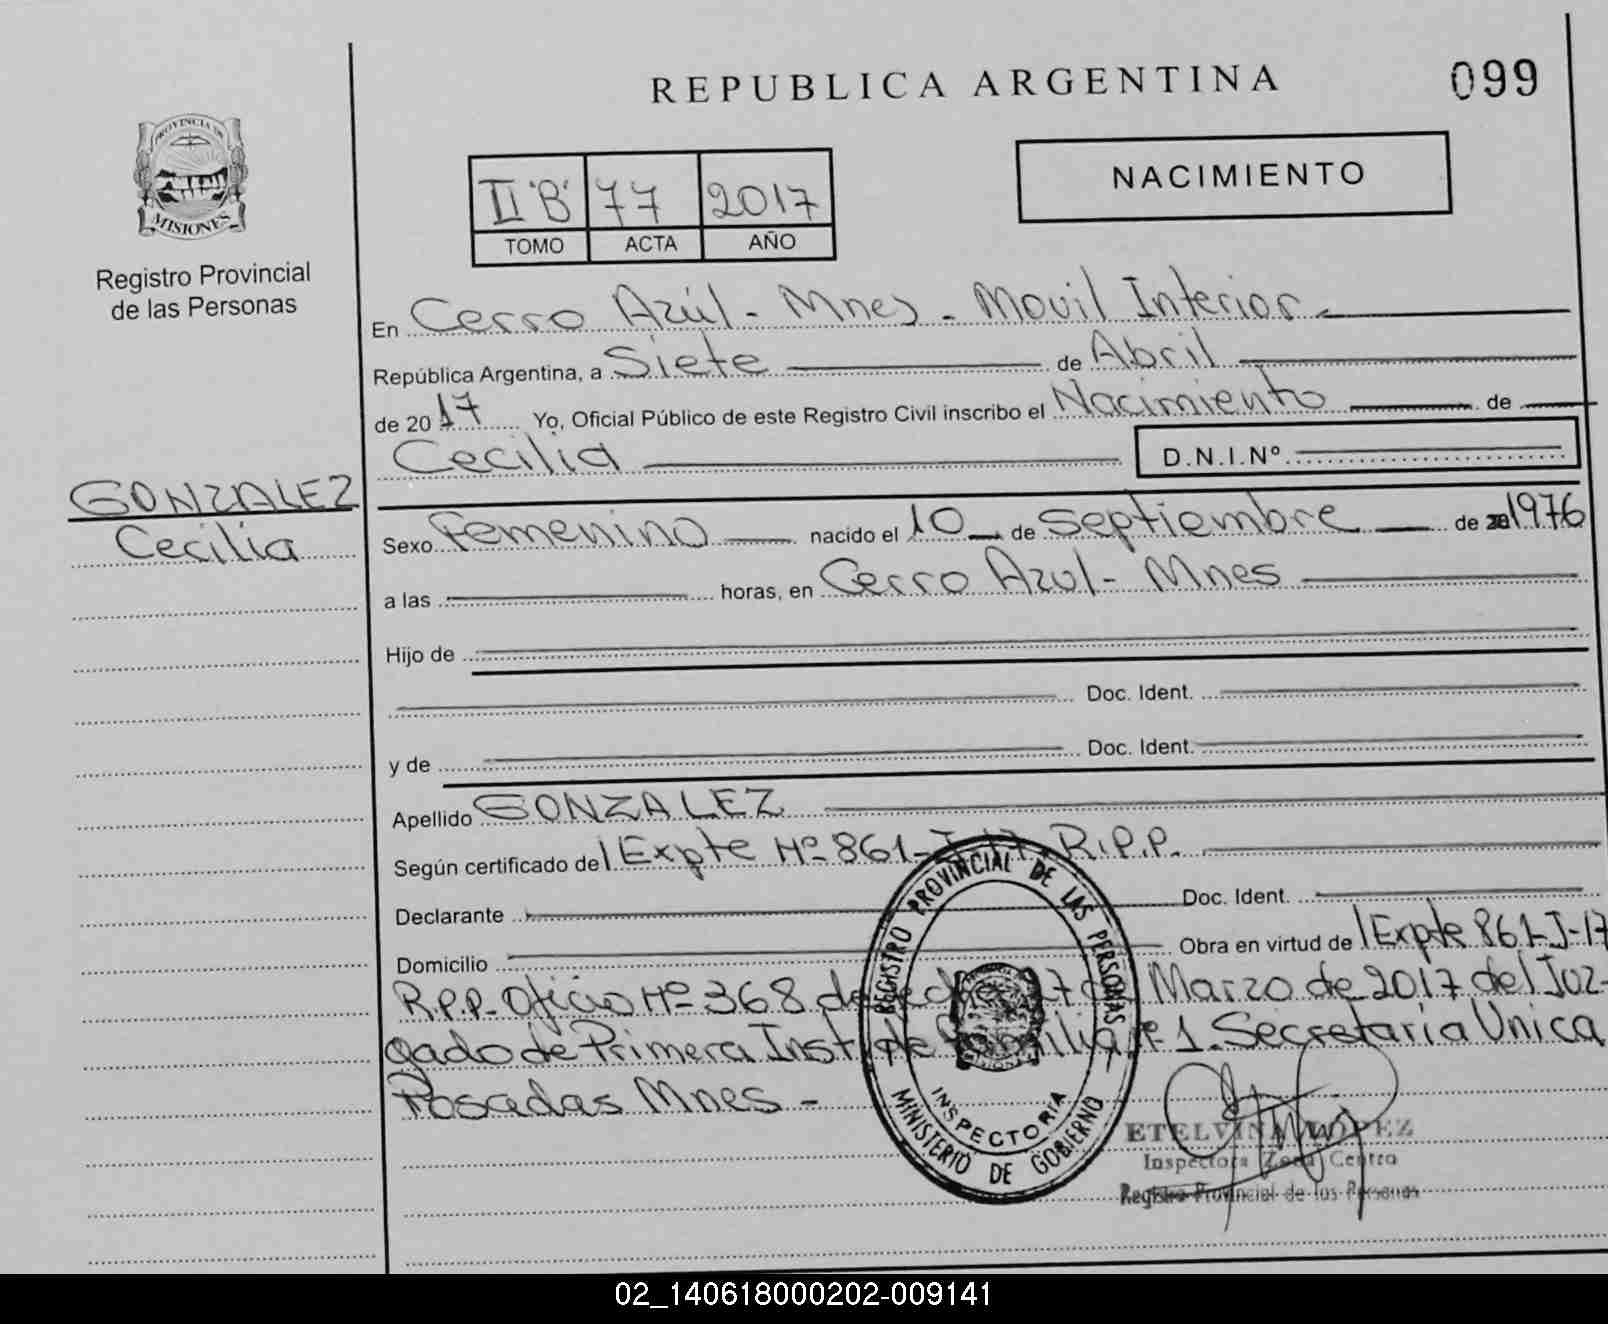 REPUBLICA ARGENTINA
099
PROVINCIA DE
MISIONES
Registro Provincial
de las Personas
II "B" 77 2017
TOMO ACTA AÑO
NACIMIENTO
En Cerro Azúl - Mnes - Movil Interior.
República Argentina, a Siete de Abril
de 2017 Yo, Oficial Público de este Registro Civil inscribo el Nacimiento de
Cecilia D.N.I.Nº
GONZALEZ
Cecilia
Sexo Femenino nacido el 10 de Septiembre de 1976
a las horas, en Cerro Azul - Mnes
Hijo de
Doc. Ident.
y de Doc. Ident.
Apellido GONZALEZ
Según certificado del Expte Nº 861-J-17. R.P.P.
Declarante Doc. Ident.
Domicilio Obra en virtud del Expte 861-J-17
R.P.P. Oficio Nº 368 de fecha 17 de Marzo de 2017 del Juz-
gado de Primera Inst. de Familia Nº 1. Secretaria Unica
Posadas Mnes -
REGISTRO PROVINCIAL DE LAS PERSONAS
INSPECTORIA
MINISTERIO DE GOBIERNO
ETELVINA LOPEZ
Inspectora Zona Centro
Registro Provincial de las Personas
02_140618000202-009141